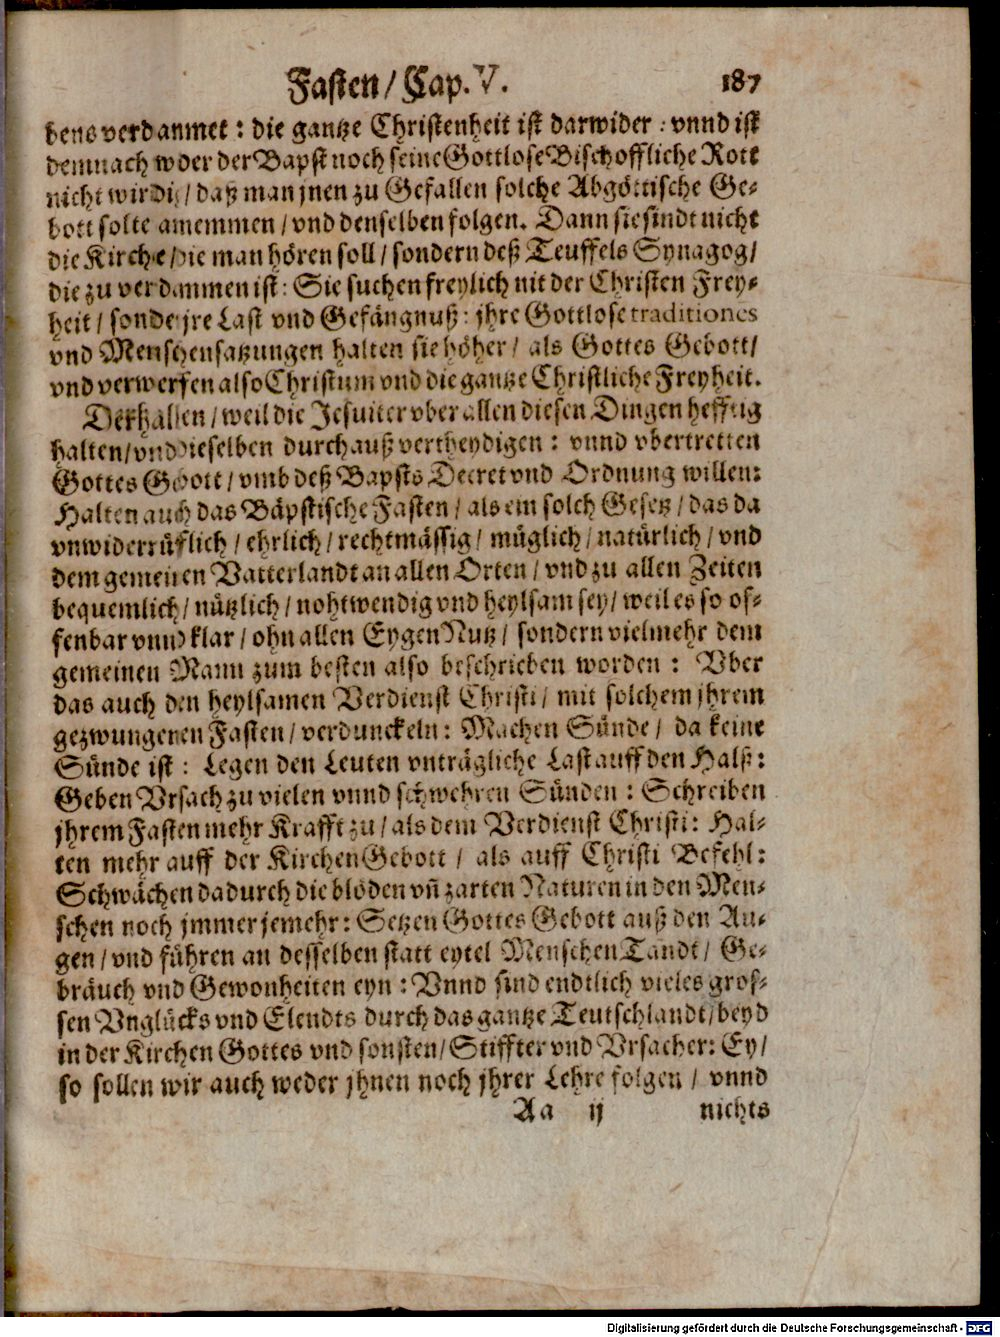 Fasten / Cap. V. 187
bens verdanmet : die gantze Christenheit ist darwider : vnnd ist
demnach weder der Bapst noch seine Gottlose Bischoffliche Rott
nicht wirdig / daß man jnen zu Gefallen solche Abgöttische Ge-
bott solte annemmen / vnd denselben folgen. Dann sie sindt nicht
die Kirche / die man hören soll / sondern deß Teuffels Synagog /
die zu verdammen ist : Sie suchen freylich nit der Christen Frey-
heit / sonder jre Last vnd Gefängnuß : jhre Gottlose traditiones
vnd Menschensatzungen halten sie höher / als Gottes Gebott /
vnd verwerfen also Christum vnd die gantze Christliche Freyheit.
Derhalben / weil die Jesuiter vber allen diesen Dingen hefftig
halten / vnd dieselben durchauß vertheydigen : vnnd vbertretten
Gottes Gebott / vmb deß Bapsts Decret vnd Ordnung willen :
Halten auch das Bäpstische Fasten / als ein solch Gesetz / das da
vnwiderrüflich / ehrlich / rechtmässig / müglich / natürlich / vnd
dem gemeinen Vatterlandt an allen Orten / vnd zu allen Zeiten
bequemlich / nützlich / nohtwendig vnd heylsam sey / weil es so of-
fenbar vnnd klar / ohn allen Eygen Nutz / sondern vielmehr dem
gemeinen Mann zum besten also beschrieben worden : Vber
das auch den heylsamen Verdienst Christi / mit solchem jhrem
gezwungenen Fasten / verdunckeln : Machen Sünde / da keine
Sünde ist : Legen den Leuten vnträgliche Last auff den Halß :
Geben Vrsach zu vielen vnnd schwehren Sünden : Schreiben
jhrem Fasten mehr Krafft zu / als dem Verdienst Christi : Hal-
ten mehr auff der Kirchen Gebott / als auff Christi Befehl :
Schwächen dadurch die blöden vñ zarten Naturen in den Men-
schen noch jmmer jemehr : Setzen Gottes Gebott auß den Au-
gen / vnd führen an desselben statt eytel Menschen Tandt / Ge-
bräuch vnd Gewonheiten eyn : Vnnd sind endtlich vieles gros-
sen Vnglücks vnd Elendts durch das gantze Teutschlandt / beyd
in der Kirchen Gottes vnd sonsten / Stiffter vnd Vrsacher : Ey /
so sollen wir auch weder jhnen noch jhrer Lehre folgen / vnnd
Aa ij nichts
Digitalisierung gefördert durch die Deutsche Forschungsgemeinschaft - DFG